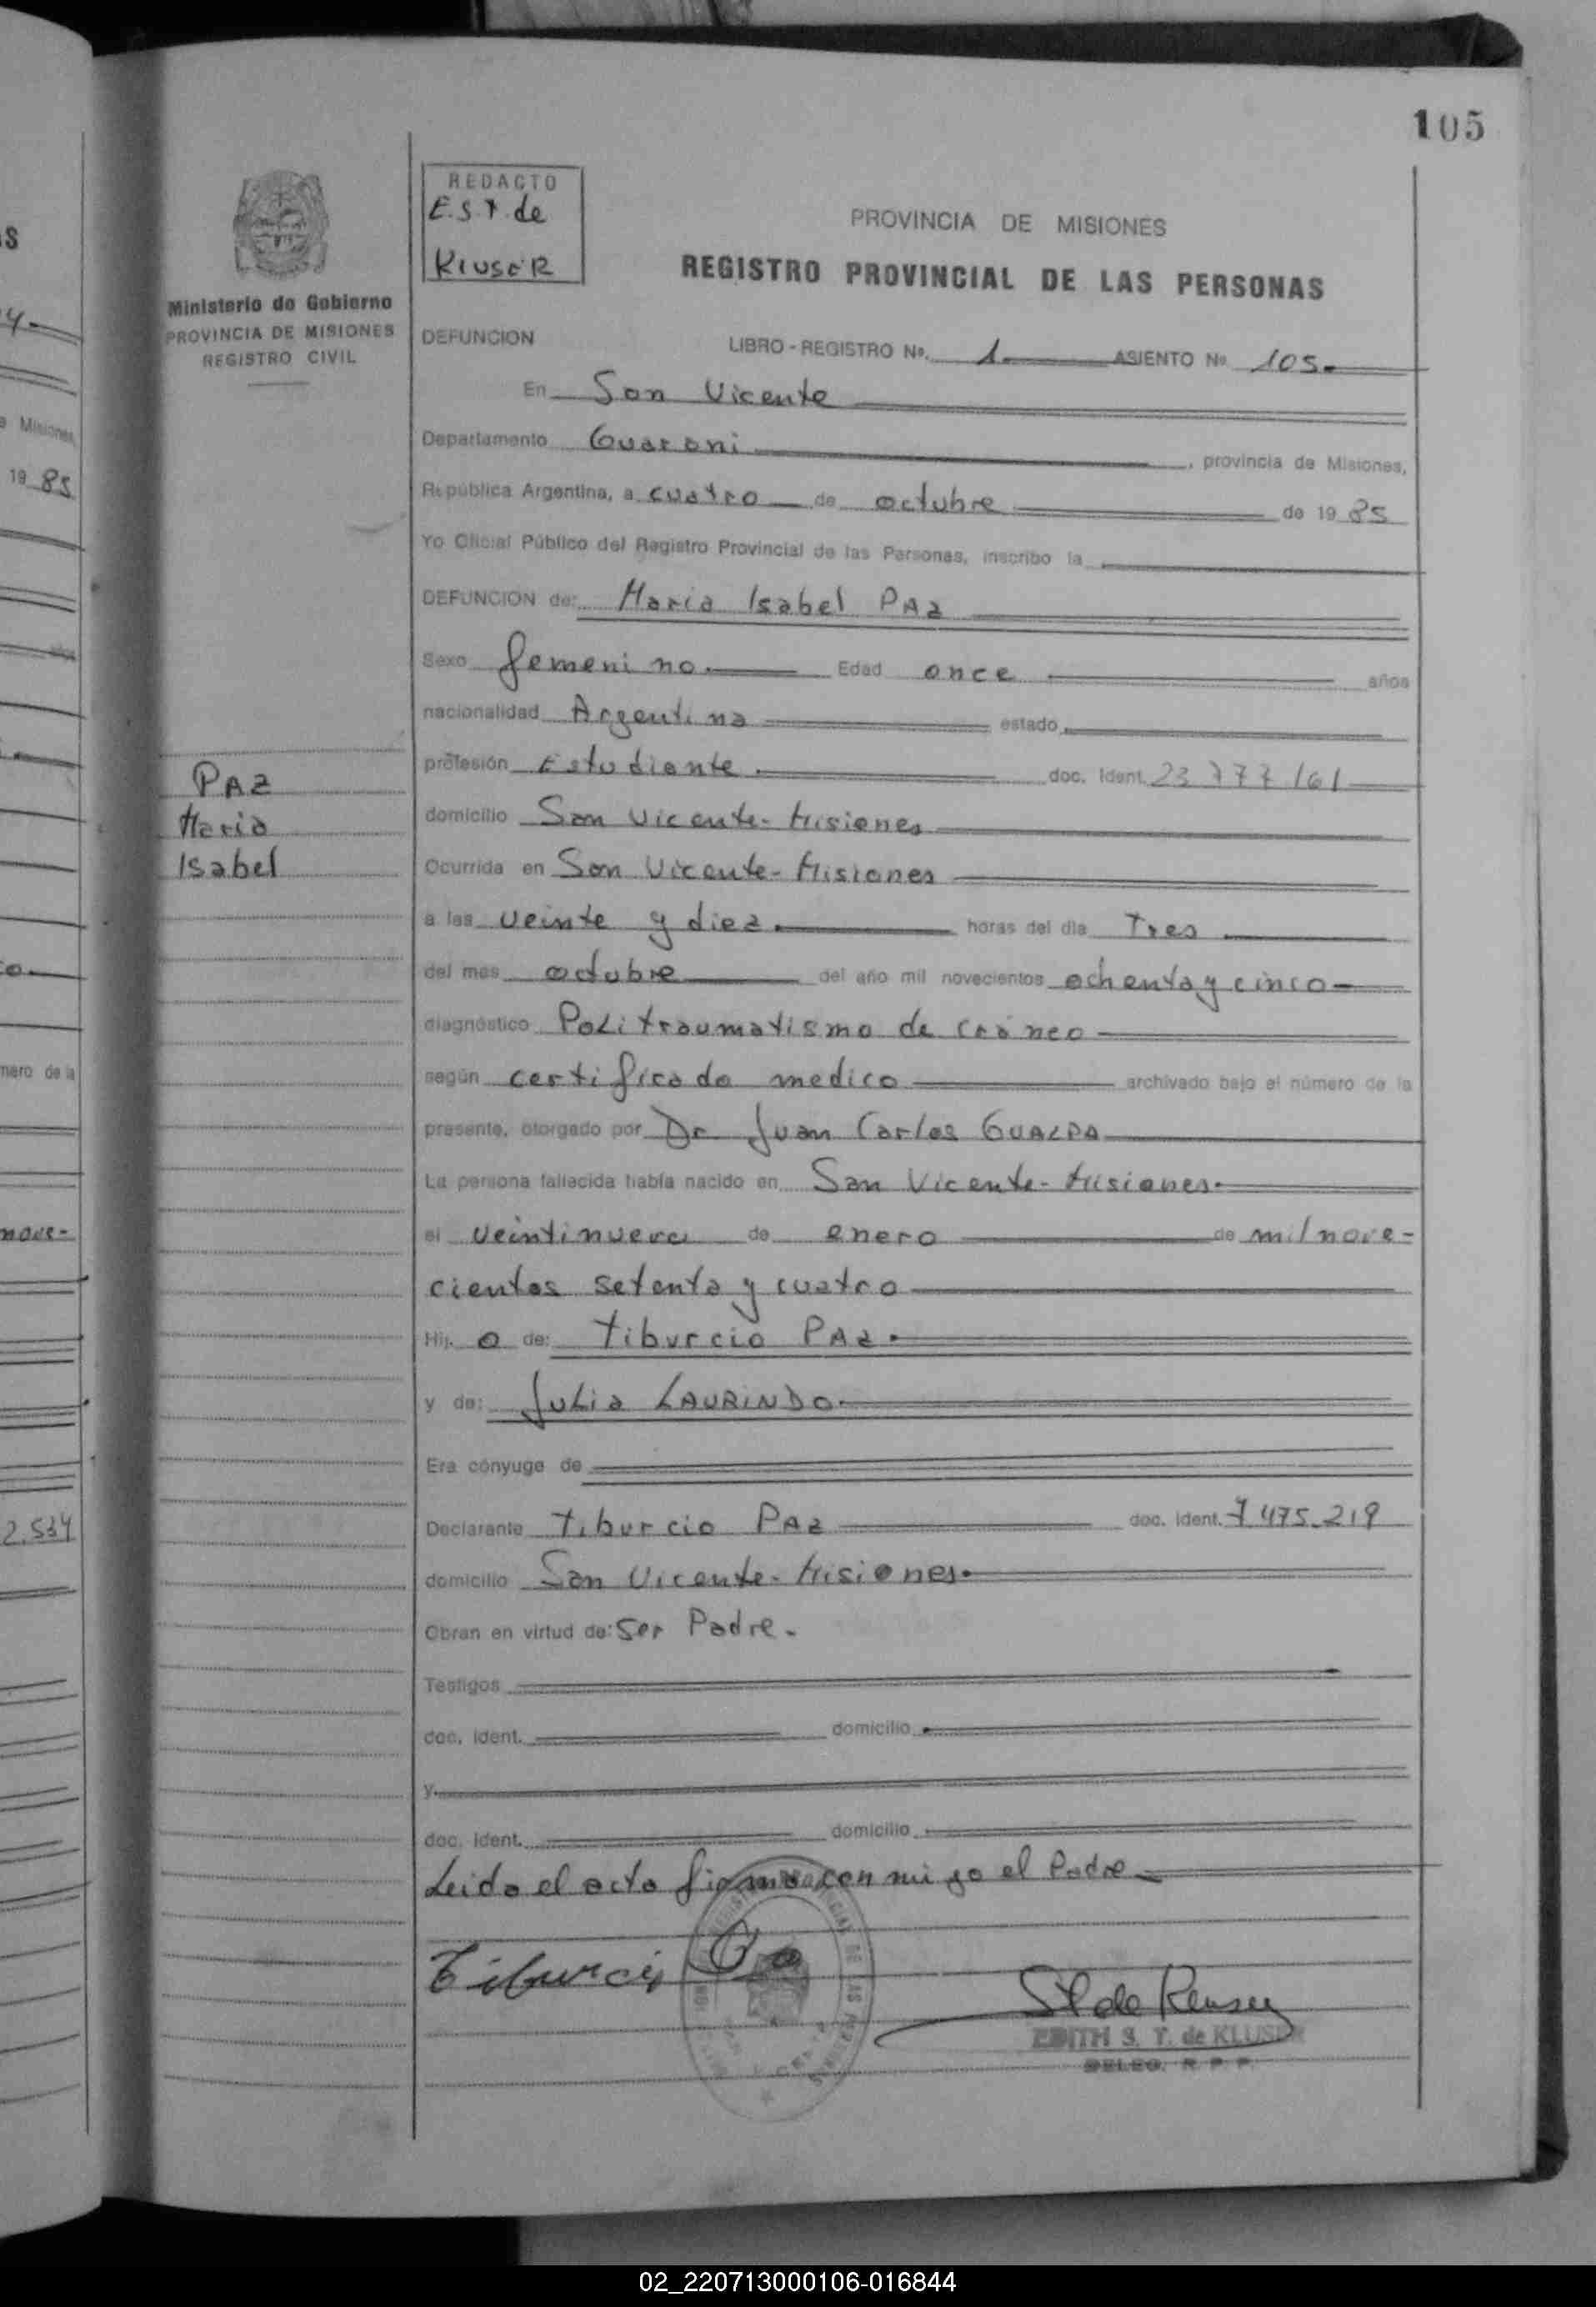 105
REDACTO
E.S.T. de
KLUSER
PROVINCIA DE MISIONES
REGISTRO PROVINCIAL DE LAS PERSONAS
Ministerio de Gobierno
PROVINCIA DE MISIONES
REGISTRO CIVIL
DEFUNCION LIBRO - REGISTRO Nº. 1. ASIENTO Nº 105.
En San Vicente
Departamento Guarani, provincia de Misiones,
República Argentina, a cuatro de octubre de 19 85
Yo Oficial Público del Registro Provincial de las Personas, inscribo la
DEFUNCION de: Maria Isabel PAZ
Sexo femenino. Edad once años
nacionalidad Argentina estado
profesión Estudiante. doc. Ident. 23 777 161
domicilio San Vicente - Misiones
Ocurrida en San Vicente - Misiones
a las veinte y diez. horas del día Tres
del mes octubre del año mil novecientos ochenta y cinco
diagnóstico Politraumatismo de cráneo
según certificado medico archivado bajo el número de la
presente, otorgado por Dr Juan Carlos GUALDA
La persona fallecida había nacido en San Vicente - Misiones.
el veintinueve de enero de mil nove-
cientos setenta y cuatro
Hij. a de: Tiburcio PAZ.
y de: Julia LAURINDO.
Era cónyuge de
Declarante Tiburcio PAZ doc. Ident. 7 475.219
domicilio San Vicente - Misiones.
Obran en virtud de: Ser Padre.
Testigos
doc. Ident. domicilio
y
doc. Ident. domicilio
Leida el acta firma con migo el Padre
Tiburcio Paz
EDITH S. T. de KLUSER
DELEG. R. P. P.
PAZ
Maria
Isabel
19 85
mero de la
nove-
2.534
02_220713000106-016844